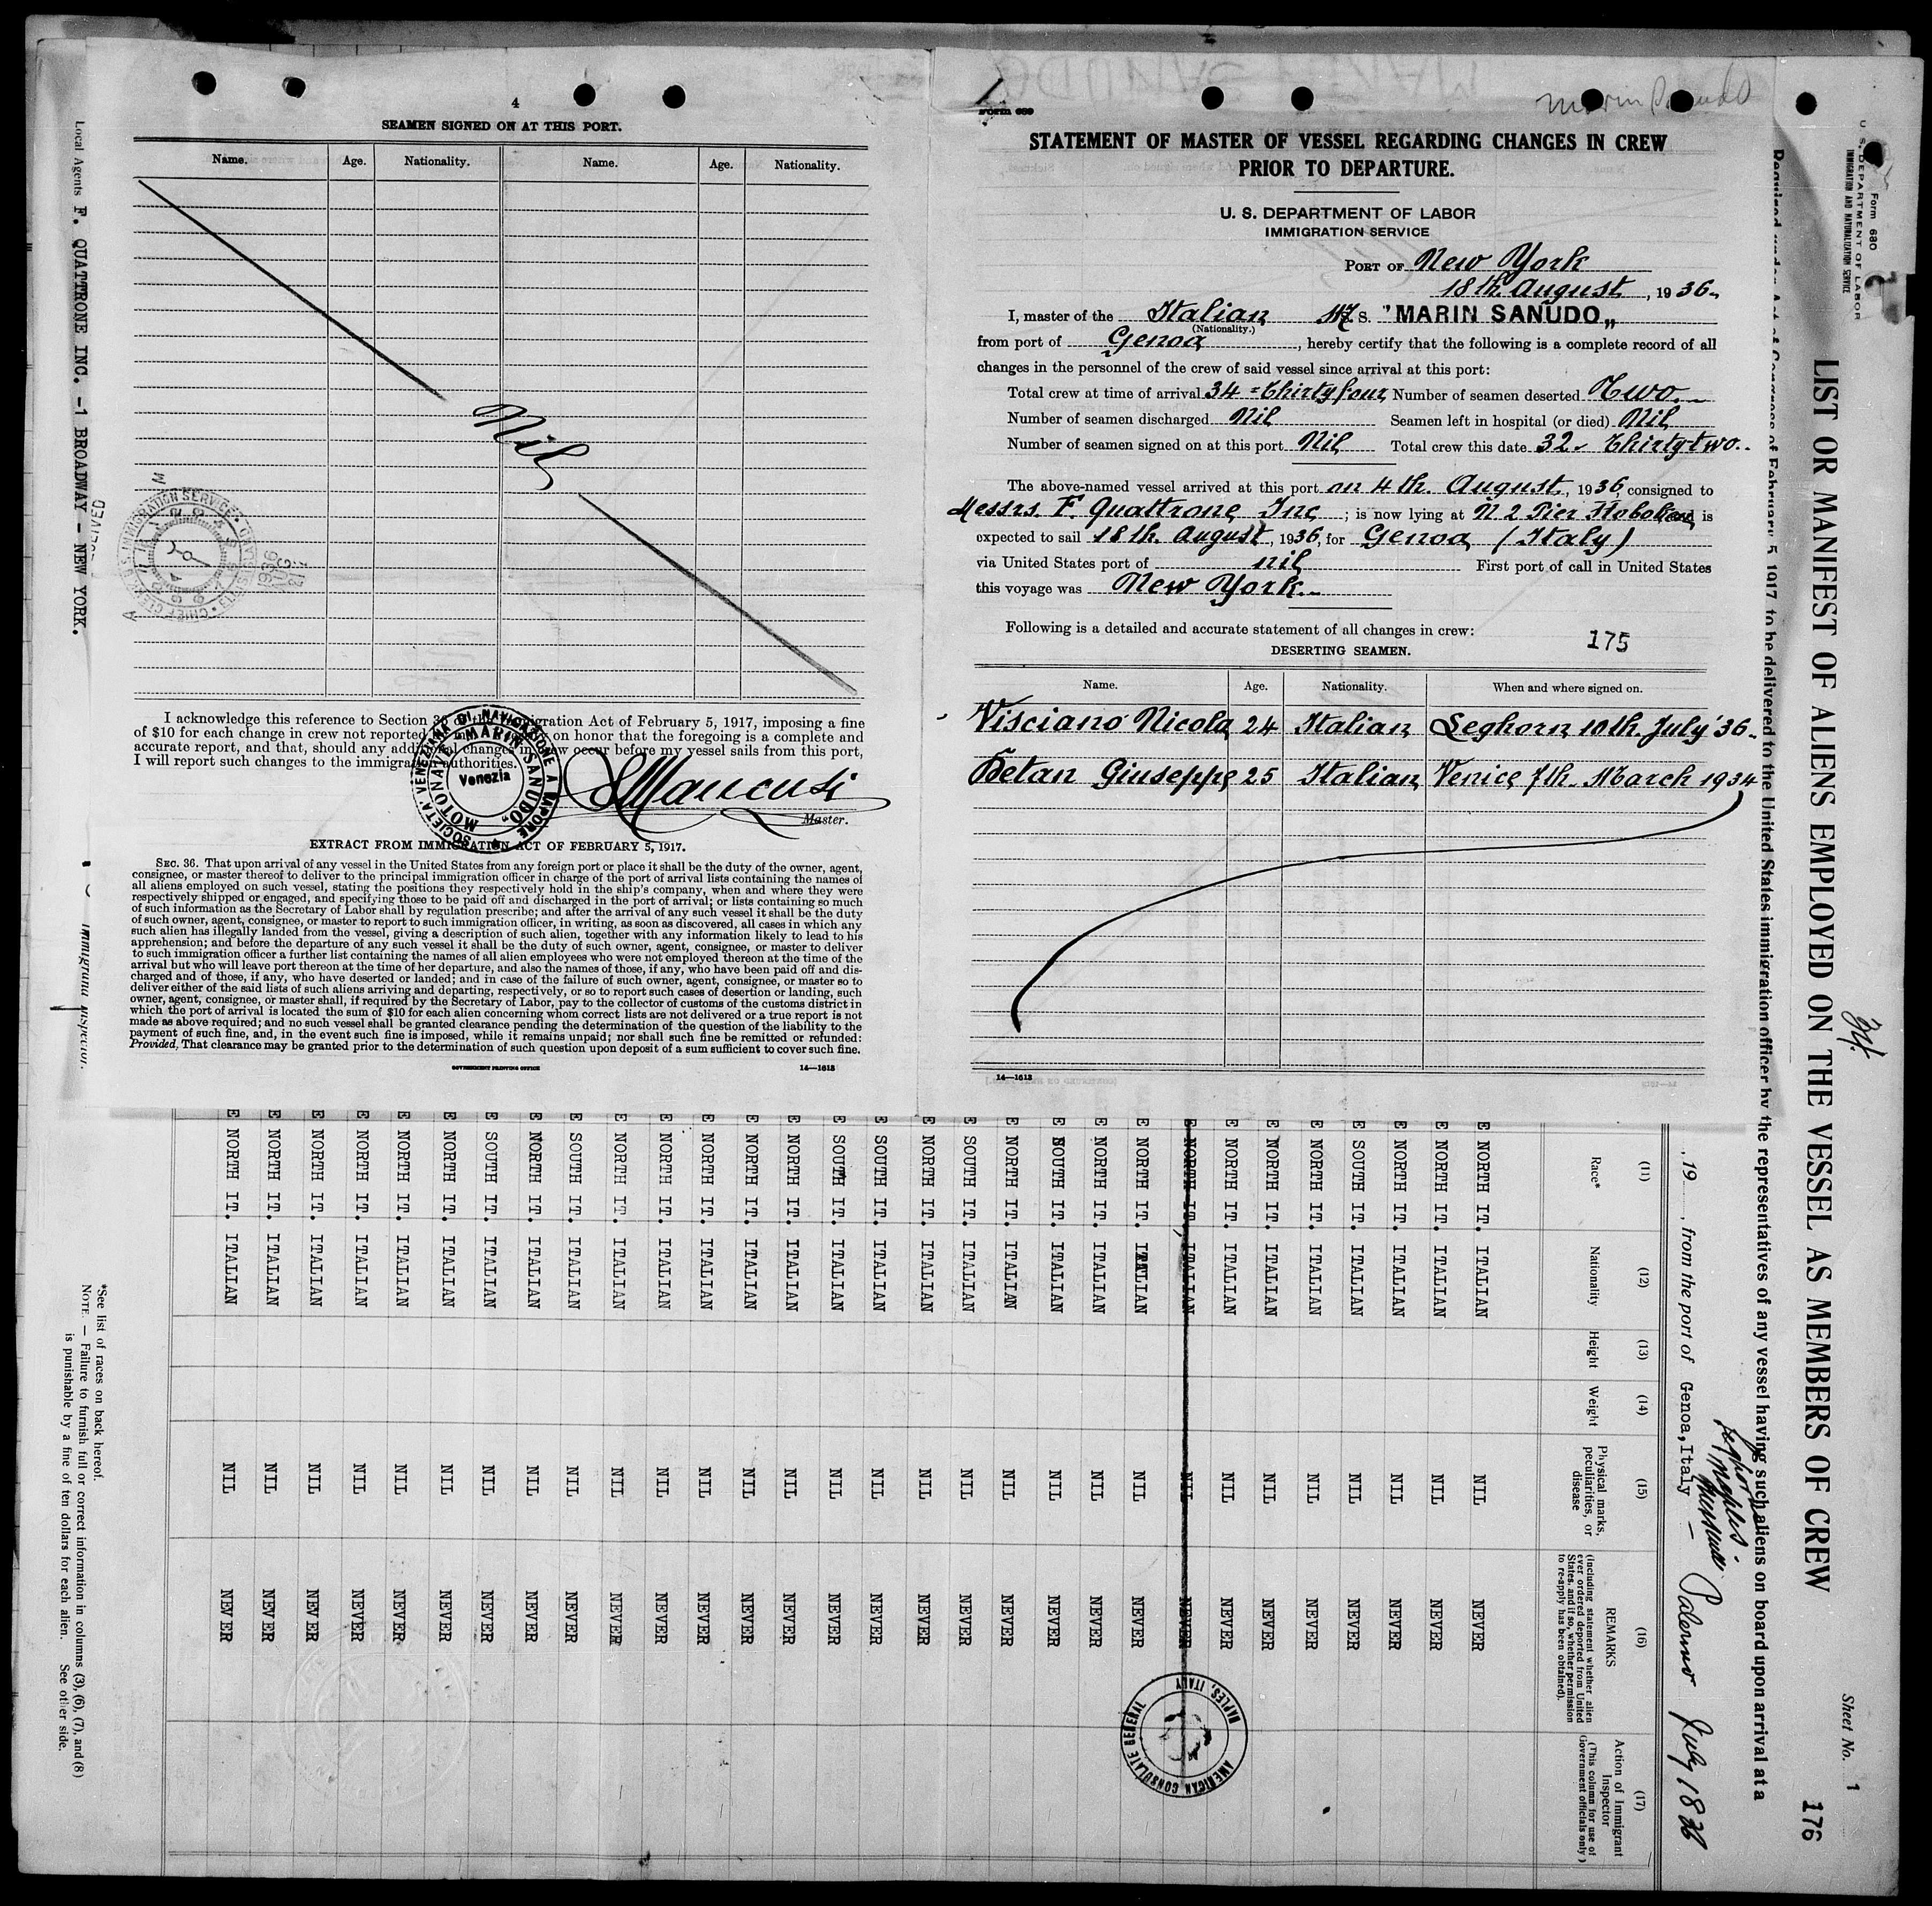 4
SEAMEN SIGNED ON AT THIS PORT.
Name. Age. Nationality. Name. Age. Nationality.
Nil
I acknowledge this reference to Section 36 of the Immigration Act of February 5, 1917, imposing a fine
of $10 for each change in crew not reported on honor that the foregoing is a complete and
accurate report, and that, should any additional changes in crew occur before my vessel sails from this port,
I will report such changes to the immigration authorities.
SOCIETA' VENEZIANA DI NAVIGAZIONE A VAPORE
MOTONAVE "MARIN SANUDO"
Venezia
Mancusi
Master.
EXTRACT FROM IMMIGRATION ACT OF FEBRUARY 5, 1917.
SEC. 36. That upon arrival of any vessel in the United States from any foreign port or place it shall be the duty of the owner, agent,
consignee, or master thereof to deliver to the principal immigration officer in charge of the port of arrival lists containing the names of
all aliens employed on such vessel, stating the positions they respectively hold in the ship's company, when and where they were
respectively shipped or engaged, and specifying those to be paid off and discharged in the port of arrival; or lists containing so much
of such information as the Secretary of Labor shall by regulation prescribe; and after the arrival of any such vessel it shall be the duty
of such owner, agent, consignee, or master to report to such immigration officer, in writing, as soon as discovered, all cases in which any
such alien has illegally landed from the vessel, giving a description of such alien, together with any information likely to lead to his
apprehension; and before the departure of any such vessel it shall be the duty of such owner, agent, consignee, or master to deliver
to such immigration officer a further list containing the names of all alien employees who were not employed thereon at the time of the
arrival but who will leave port thereon at the time of her departure, and also the names of those, if any, who have been paid off and dis-
charged and of those, if any, who have deserted or landed; and in case of the failure of such owner, agent, consignee, or master so to
deliver either of the said lists of such aliens arriving and departing, respectively, or so to report such cases of desertion or landing, such
owner, agent, consignee, or master shall, if required by the Secretary of Labor, pay to the collector of customs of the customs district in
which the port of arrival is located the sum of $10 for each alien concerning whom correct lists are not delivered or a true report is not
made as above required; and no such vessel shall be granted clearance pending the determination of the question of the liability to the
payment of such fine, and, in the event such fine is imposed, while it remains unpaid; nor shall such fine be remitted or refunded:
Provided, That clearance may be granted prior to the determination of such question upon deposit of a sum sufficient to cover such fine.
GOVERNMENT PRINTING OFFICE 14—1613
Form 689
Marin Sanudo
STATEMENT OF MASTER OF VESSEL REGARDING CHANGES IN CREW
PRIOR TO DEPARTURE.
U. S. DEPARTMENT OF LABOR
IMMIGRATION SERVICE
PORT OF New York
18th August, 1936.
I, master of the Italian M. S. "MARIN SANUDO„
(Nationality.)
from port of Genoa, hereby certify that the following is a complete record of all
changes in the personnel of the crew of said vessel since arrival at this port:
Total crew at time of arrival 34 = Thirty four Number of seamen deserted Two.
Number of seamen discharged Nil Seamen left in hospital (or died) Nil
Number of seamen signed on at this port Nil Total crew this date 32 - Thirty-two.
The above-named vessel arrived at this port on 4th. August, 1936, consigned to
Messrs. F. Quattrone Inc; is now lying at N. 2 Pier Hoboken, is
expected to sail 18th. August, 1936, for Genoa (Italy)
via United States port of nil First port of call in United States
this voyage was New York.-
Following is a detailed and accurate statement of all changes in crew:
175
DESERTING SEAMEN.
Name. Age. Nationality. When and where signed on.
Visciano Nicola 24 Italian Leghorn 10th. July '36.
Giuseppe 25 Italian Venice 7th. March 1934
14—1613
Local Agents F. QUATTRONE INC. -1 BROADWAY - NEW YORK.
Immigrant Inspector.
Form 680
U. S. DEPARTMENT OF LABOR
IMMIGRATION AND NATURALIZATION SERVICE
LIST OR MANIFEST OF ALIENS EMPLOYED ON THE VESSEL AS MEMBERS OF CREW
34
Sheet No. 1
176
Required under Act of Congress of February 5, 1917, to be delivered to the United States immigration officer by the representatives of any vessel having such aliens on board upon arrival at a
, 19 , from the port of Genoa, Italy — Palermo July 18 36
Leghorn
Naples -
Messina
(11) (12) (13) (14) (15) (16) (17)
Race* Nationality Height Weight Physical marks, peculiarities, or disease REMARKS (Including statement whether alien ever ordered deported from United States, and if so, whether permission to re-apply has been obtained). Action of Immigrant Inspector (This column for use of Government officials only)
E NORTH IT. ITALIAN NIL NEVER
E NORTH IT. ITALIAN NIL NEVER
E NORTH IT. ITALIAN NIL NEVER
E SOUTH IT. ITALIAN NIL NEVER
E NORTH IT. ITALIAN NIL NEVER
E NORTH IT. ITALIAN NIL NEVER
E NORTH IT. ITALIAN NIL NEVER
E NORTH IT. ITALIAN NIL NEVER
E NORTH IT. ITALIAN NIL NEVER
E NORTH IT. ITALIAN NIL NEVER
E SOUTH IT. ITALIAN NIL NEVER
E NORTH IT. ITALIAN NIL NEVER
E SOUTH IT. ITALIAN NIL NEVER
E NORTH IT. ITALIAN NIL NEVER
E SOUTH IT. ITALIAN NIL NEVER
E SOUTH IT. ITALIAN NIL NEVER
E NORTH IT. ITALIAN NIL NEVER
E NORTH IT. ITALIAN NIL NEVER
E NORTH IT. ITALIAN NIL NEVER
E NORTH IT. ITALIAN NIL NEVER
E NORTH IT. ITALIAN NIL NEVER
E SOUTH IT. ITALIAN NIL NEVER
E NORTH IT. ITALIAN NIL NEVER
E SOUTH IT. ITALIAN NIL NEVER
E NORTH IT. ITALIAN NIL NEVER
E NORTH IT. ITALIAN NIL NEVER
E NORTH IT. ITALIAN NIL NEVER
E NORTH IT. ITALIAN NIL NEVER
E NORTH IT. ITALIAN NIL NEVER
E NORTH IT. ITALIAN NIL NEVER
AMERICAN CONSULATE GENERAL
NAPLES, ITALY
*See list of races on back hereof.
NOTE. — Failure to furnish full or correct information in columns (3), (6), (7), and (8)
is punishable by a fine of ten dollars for each alien. See other side.